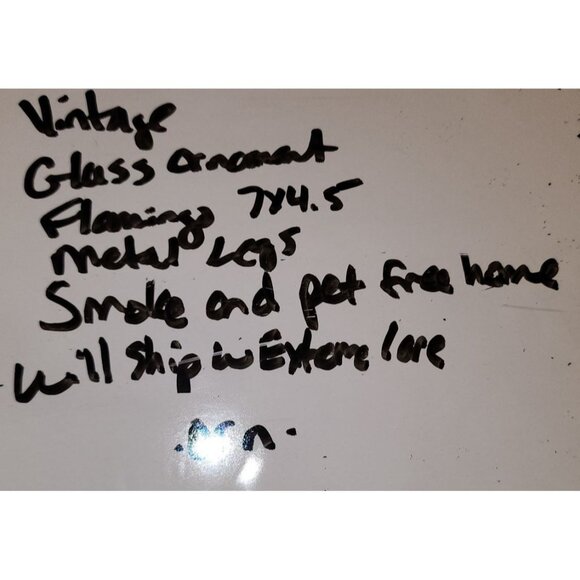 Vintage
Glass ornament
Flamingo 7x4.5
metal Legs
Smoke and pet free home
will ship w Exteme Care